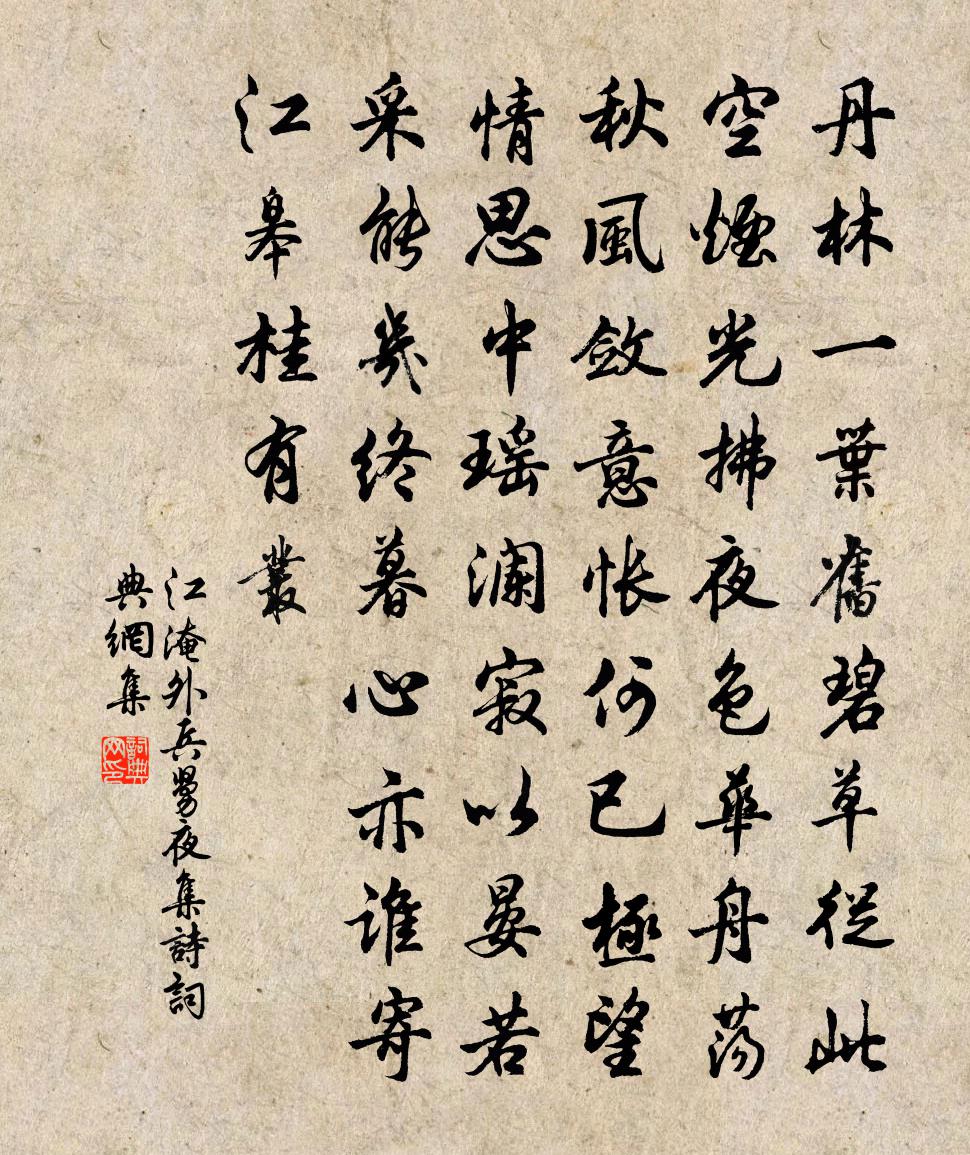 丹林一葉舊碧草從此
空煙光拂夜色華舟蕩
秋風斂意悵何已極望
情思中瑶瀾寂以晏若
采能幾終暮心亦誰寄
江皋桂有叢
江淹外兵舅夜集詩詞
典網集
詞典網印